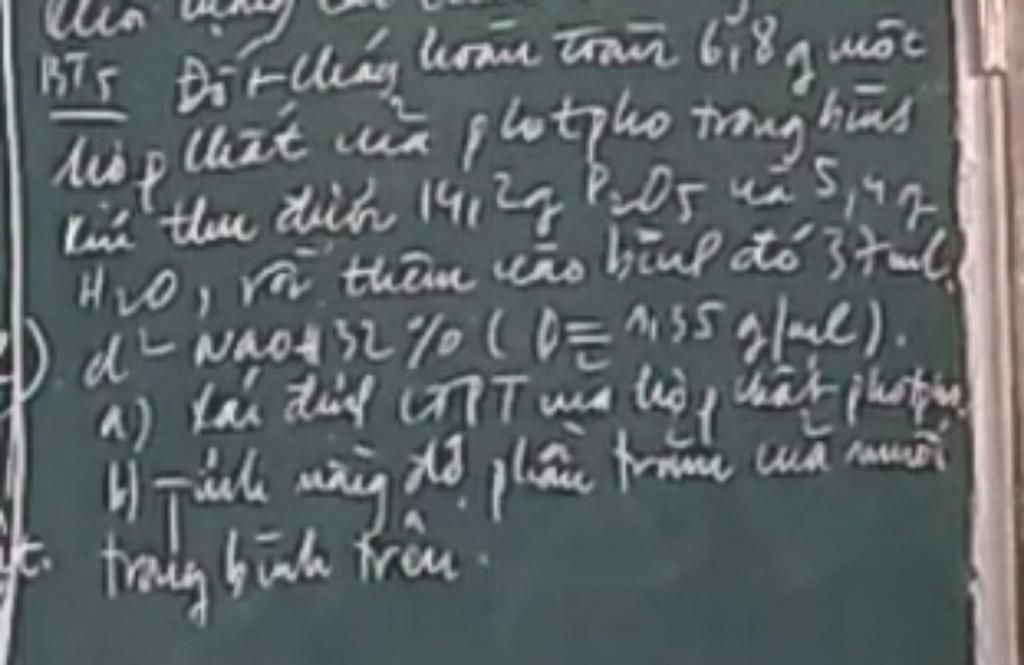 BT5 Đốt cháy hoàn toàn 6,8g một
hợp chất của photpho trong bình
kín thu được 14,2g P2O5 và 5,4g
H2O, rồi thêm vào bình đó 37ml
d² NaOH 32% (D = 1,35 g/ml).
a) Xác định CTPT của hợp chất photpho
b) Tính nồng độ phần trăm của muối
trong bình trên.